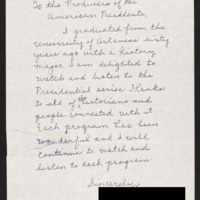 To the Producers of the
American Presidents,
I graduated from the
University of Arkansas sixty
years ago with a history
major. I am delighted to
watch and listen to the
Presidential series. Thanks
to all of the historians and
people connected with it.
Each program has been
wonderful and I will
continue to watch and
listen to each program.
Sincerely,